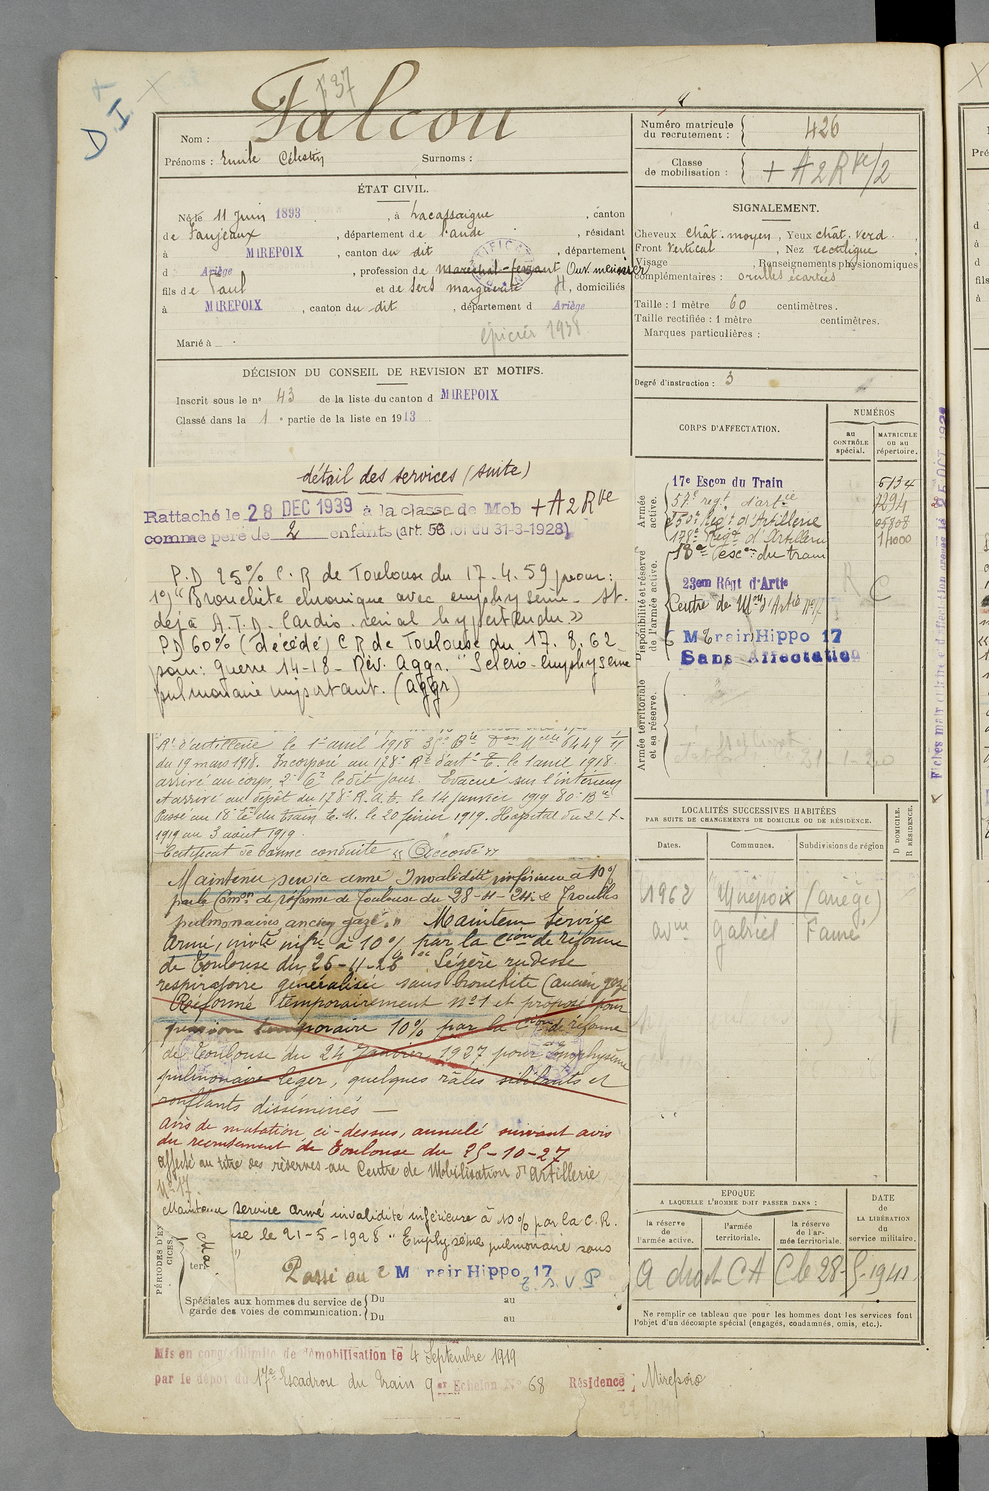 837
D. I.
Nom : Falcou
Prénoms : Emile Célestin Surnoms :
Numéro matricule du recrutement : 426
Classe de mobilisation : + A 2 Rve/2
ÉTAT CIVIL.
Né le 11 Juin 1893, à Lacassaigne, canton
de Fanjeaux, département de l'Aude, résidant
à MIREPOIX, canton du dit, département
d Ariège, profession de maréchal-ferrant Ouv. menuisier
fils de Paul et de Sers marguerite H, domiciliés
à MIREPOIX, canton du dit, département d Ariège
épicier 1938
Marié à
SIGNALEMENT.
Cheveux chât. moyen, Yeux chât. verd
Front Vertical, Nez rectiligne
Visage , Renseignements physionomiques
complémentaires : oreilles écartées
Taille : 1 mètre 60 centimètres.
Taille rectifiée : 1 mètre centimètres.
Marques particulières :
Degré d'instruction : 3
DÉCISION DU CONSEIL DE REVISION ET MOTIFS.
Inscrit sous le n° 43 de la liste du canton d MIREPOIX
Classé dans la 1e partie de la liste en 1913
détail des services (suite)
Rattaché le 28 DEC 1939 à la classe de Mob + A 2 Rve
comme père de 2 enfants (art. 58 loi du 31-3-1928)
P.D 25% C.R de Toulouse du 17.4.59 pour :
1°) "Bronchite chronique avec emphysème - St.
déjà A.T.D. Cardio-rénal hypertendu »
PD 60% (décédé) CR de Toulouse du 17.8.62
pour : guerre 14-18 - Rév. Aggr. "Scléro-emphysème
pulmonaire important. (aggr)
Rt d'artillerie le 1er avril 1918
du 19 mars 1918. Incorporé au 178e Rt d'art. le 1 avril 1918.
arrivé au corps, 2e Cr ledit jour. Evacué sur l'intérieur
et arrivé au dépôt du 178e R.A.T. le 14 janvier 1919 80e Bie
Passé au 18e Ec du Train E.M. le 20 février 1919. Hôpital du 21-7-
1919 au 3 août 1919.
Certificat de bonne conduite « Accordé »
Maintenu service armé Invalidité inférieure à 10%
par la Comon de réforme de Toulouse du 28-11-24. « Troubles
pulmonaires ancien gazé. » Maintenu Service
Armé, invté infre à 10% par la Cion de réforme
de Toulouse du 26-11-26 "Légère rudesse
respiratoire généralisée sans bronchite (ancien gazé
Réformé temporairement n°1 et proposé pour
pension temporaire 10% par la Cion de réforme
de Toulouse du 24 Janvier 1927 pour emphysème
pulmonaire léger, quelques râles sibilants et
ronflants disséminés —
avis de mutation ci-dessus, annulé suivant avis
du recrutement de Toulouse du 25-10-27
affecté au titre des réserves au Centre de Mobilisation d'Artillerie
N° 17.
Maintenu service armé invalidité inférieure à 10% par la C.R.
le 21-5-1928 "Emphysème pulmonaire sans
Passé au 2 Mrain Hippo 17
T. S. V. P
PÉRIODES D'EXERCICES.
Spéciales aux hommes du service de garde des voies de communication. Du au
Du au
CORPS D'AFFECTATION.
NUMÉROS
au CONTRÔLE spécial.
MATRICULE ou au répertoire.
Armée active.
17e Escon du Train 6134
57e régt d'artie 7294
Regt d'Artillerie 05808
178e Régt d'Artillerie 14000
18e escon du train
Disponibilité et réserve de l'armée active.
23em Régt d'Artie
Centre de Mon d'Artie N°17
R C
Mrain Hippo 17
Sans Affectation
Armée territoriale et sa réserve.
21-1-20
LOCALITÉS SUCCESSIVES HABITÉES
PAR SUITE DE CHANGEMENTS DE DOMICILE OU DE RÉSIDENCE.
Dates. Communes. Subdivisions de région
D DOMICILE. R RÉSIDENCE.
1962 Mirepoix (Ariège)
avue Gabriel Fauré
EPOQUE
A LAQUELLE L'HOMME DOIT PASSER DANS :
la réserve de l'armée active.
l'armée territoriale.
la réserve de l'armée territoriale.
DATE DE LA LIBÉRATION du service militaire.
A droit CA C le 28-5-1941
Ne remplir ce tableau que pour les hommes dont les services font
l'objet d'un décompte spécial (engagés, condamnés, omis, etc.).
Mis en congé illimité de démobilisation le 4 Septembre 1919
par le dépôt du 17e Escadron du Train 9em Echelon N° 68 Résidence : Mirepoix